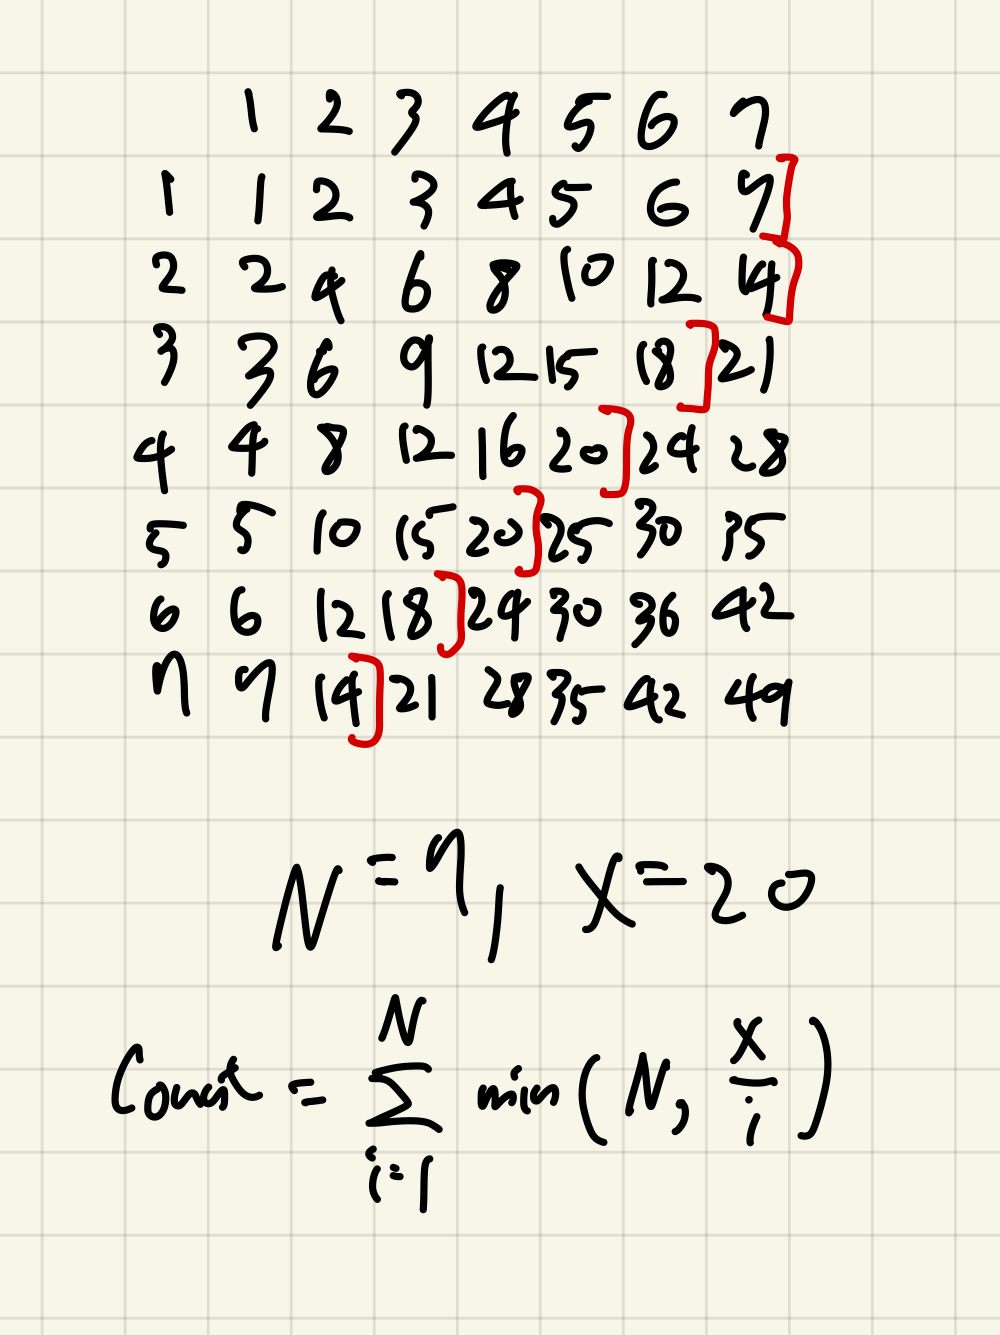 1 2 3 4 5 6 7
1 1 2 3 4 5 6 7]
2 2 4 6 8 10 12 14]
3 3 6 9 12 15 18] 21
4 4 8 12 16 20] 24 28
5 5 10 15 20] 25 30 35
6 6 12 18] 24 30 36 42
7 7 14] 21 28 35 42 49
N = 7, X = 20
Count = \sum_{i=1}^{N} min(N, \frac{X}{i})